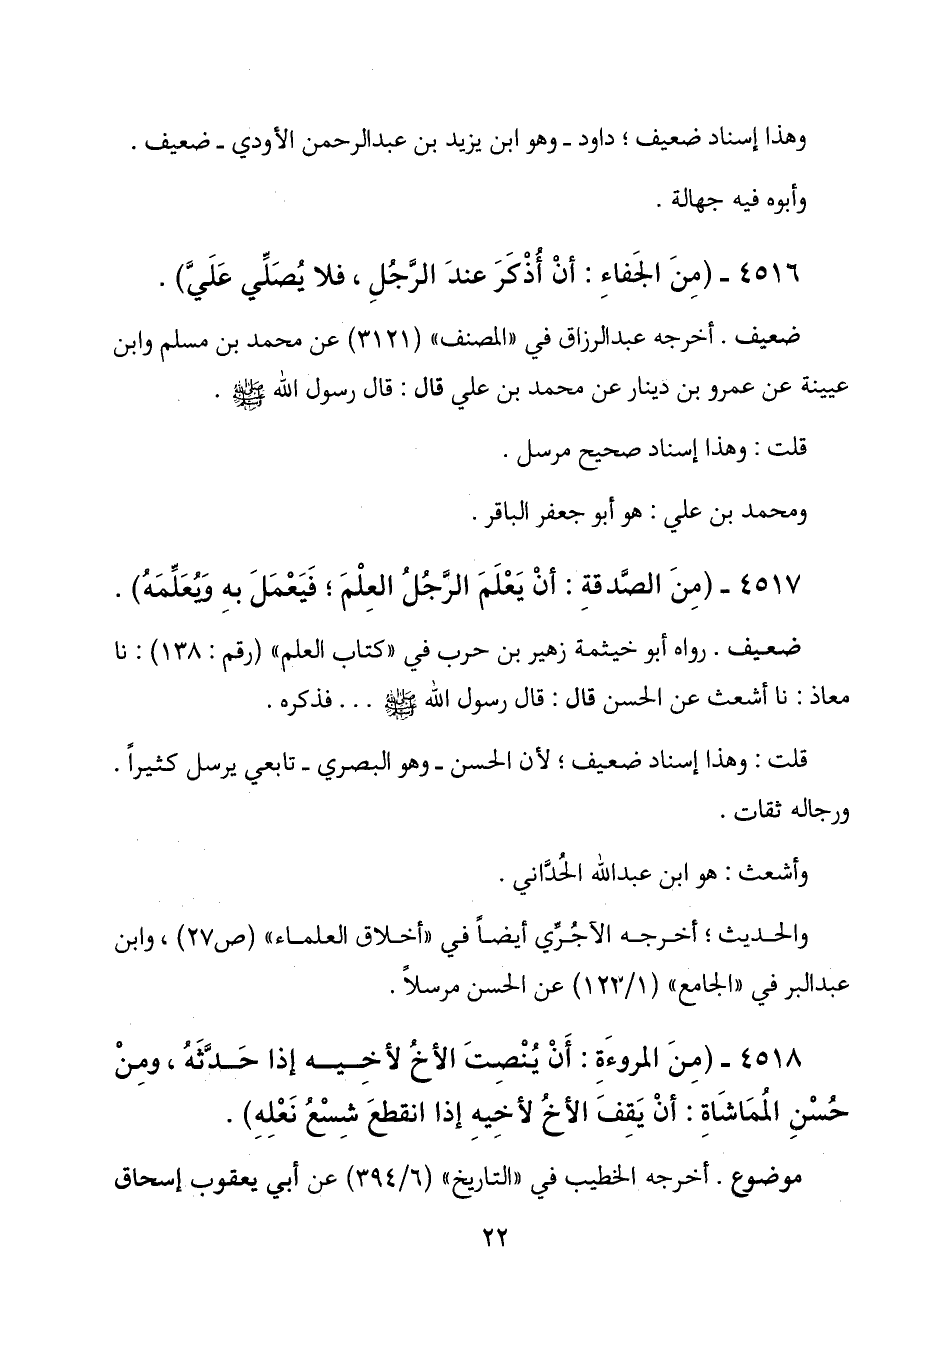 وهذا إسناد ضعيف ؛ داود ـ وهو ابن يزيد بن عبدالرحمن الأودي ـ ضعيف .
وأبوه فيه جهالة .
٤٥١٦ ـ (مِنَ الجَفاءِ : أنْ أُذْكَرَ عندَ الرَّجُلِ ، فلا يُصَلِّي عَلَيَّ) .
ضعيف . أخرجه عبدالرزاق في «المصنف» (٣١٢١) عن محمد بن مسلم وابن
عيينة عن عمرو بن دينار عن محمد بن علي قال : قال رسول الله ﷺ .
قلت : وهذا إسناد صحيح مرسل .
ومحمد بن علي : هو أبو جعفر الباقر .
٤٥١٧ ـ (مِنَ الصَّدقةِ : أنْ يَعْلَمَ الرَّجُلُ العِلْمَ ؛ فَيَعْمَلَ بهِ وَيُعَلِّمَهُ) .
ضعيف . رواه أبو خيثمة زهير بن حرب في «كتاب العلم» (رقم : ١٣٨) : نا
معاذ : نا أشعث عن الحسن قال : قال رسول الله ﷺ ... فذكره .
قلت : وهذا إسناد ضعيف ؛ لأن الحسن ـ وهو البصري ـ تابعي يرسل كثيراً .
ورجاله ثقات .
وأشعث : هو ابن عبدالله الحُدَّاني .
والحديث ؛ أخرجه الآجُرِّي أيضاً في «أخلاق العلماء» (ص٢٧) ، وابن
عبدالبر في «الجامع» (١٢٣/١) عن الحسن مرسلاً .
٤٥١٨ ـ (مِنَ المروءَةِ : أَنْ يُنْصِتَ الأخُ لأخِيهِ إذا حَدَّثَهُ ، ومِنْ
حُسْنِ المُمَاشَاةِ : أنْ يَقِفَ الأخُ لأخيهِ إذا انقطعَ شِسْعُ نَعْلِهِ) .
موضوع . أخرجه الخطيب في «التاريخ» (٣٩٤/٦) عن أبي يعقوب إسحاق
٢٢